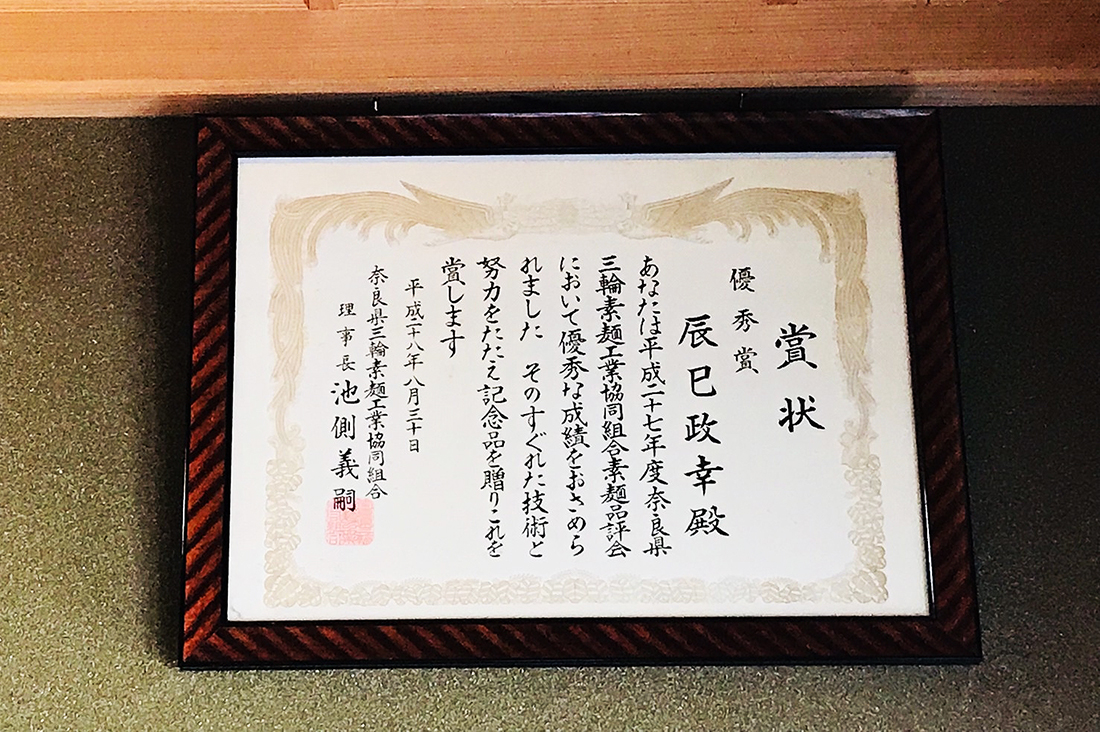 賞状
優秀賞
辰巳政幸殿
あなたは平成二十七年度奈良県
三輪素麺工業協同組合素麺品評会
において優秀な成績をおさめら
れました そのすぐれた技術と
努力をたたえ記念品を贈りこれを
賞します
平成二十八年八月三十日
奈良県三輪素麺工業協同組合
理事長 池側義嗣